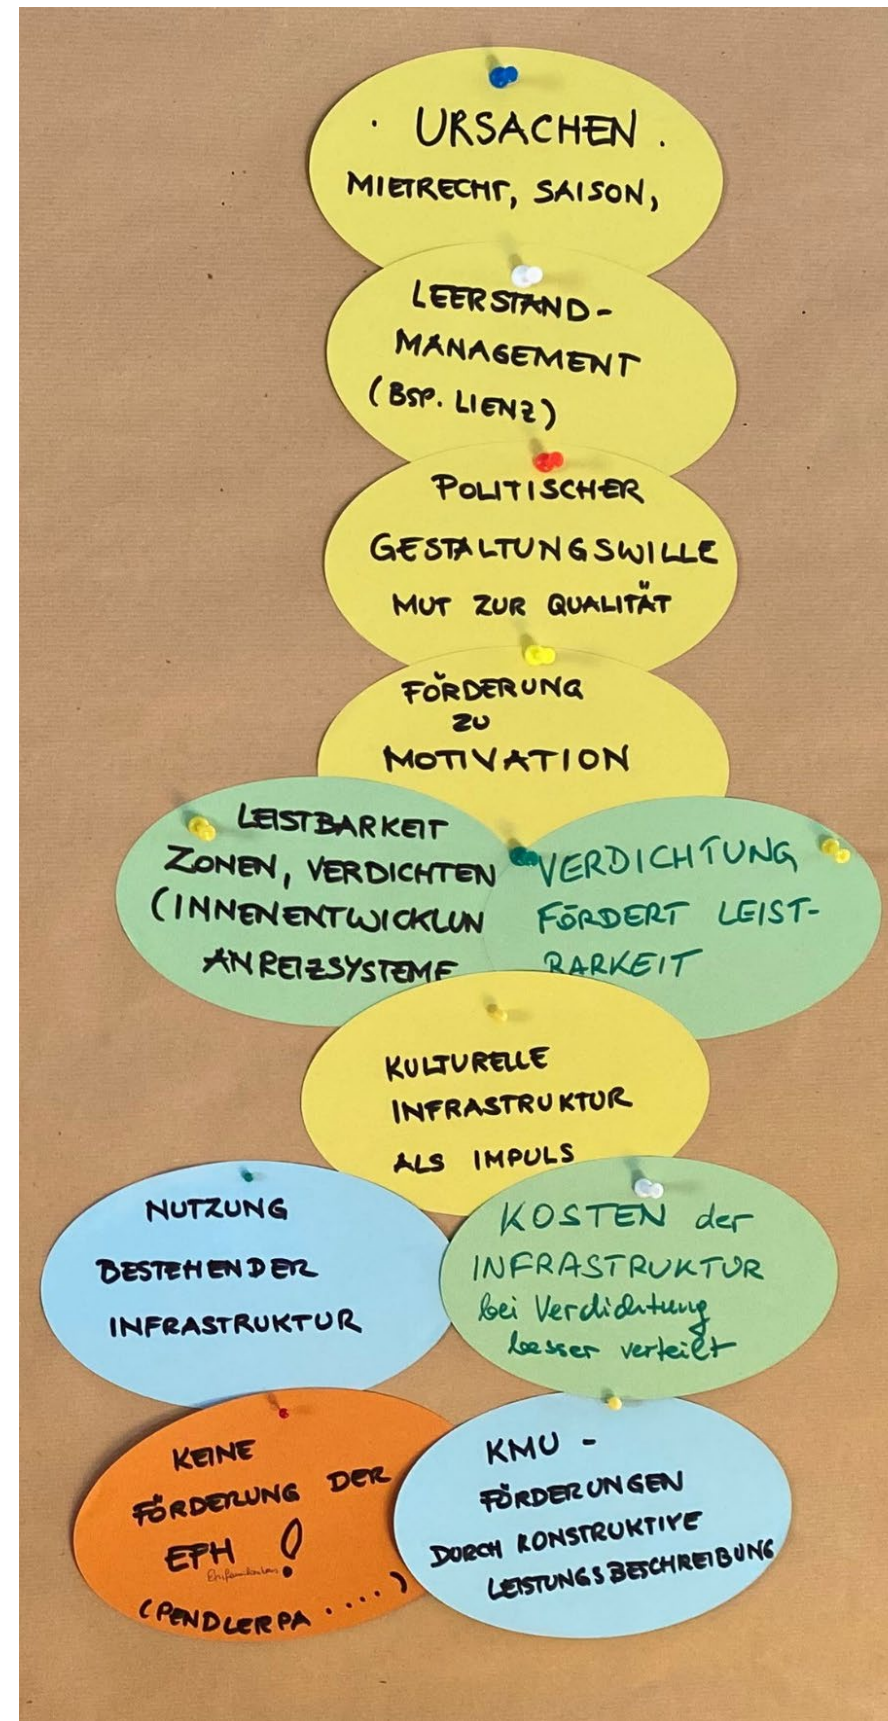 · URSACHEN .
MIETRECHT, SAISON,
LEERSTAND-
MANAGEMENT
(BSP. LIENZ)
POLITISCHER
GESTALTUNGSWILLE
MUT ZUR QUALITÄT
FÖRDERUNG
ZU
MOTIVATION
LEISTBARKEIT
ZONEN, VERDICHTEN
(INNENENTWICKLUN
ANREIZSYSTEME
VERDICHTUNG
FÖRDERT LEIST-
BARKEIT
KULTURELLE
INFRASTRUKTUR
ALS IMPULS
NUTZUNG
BESTEHENDER
INFRASTRUKTUR
KOSTEN der
INFRASTRUKTUR
bei Verdichtung
besser verteilt
KEINE
FÖRDERUNG DER
EFH !
(PENDLERPA ....)
KMU -
FÖRDERUNGEN
DURCH KONSTRUKTIVE
LEISTUNGSBESCHREIBUNG